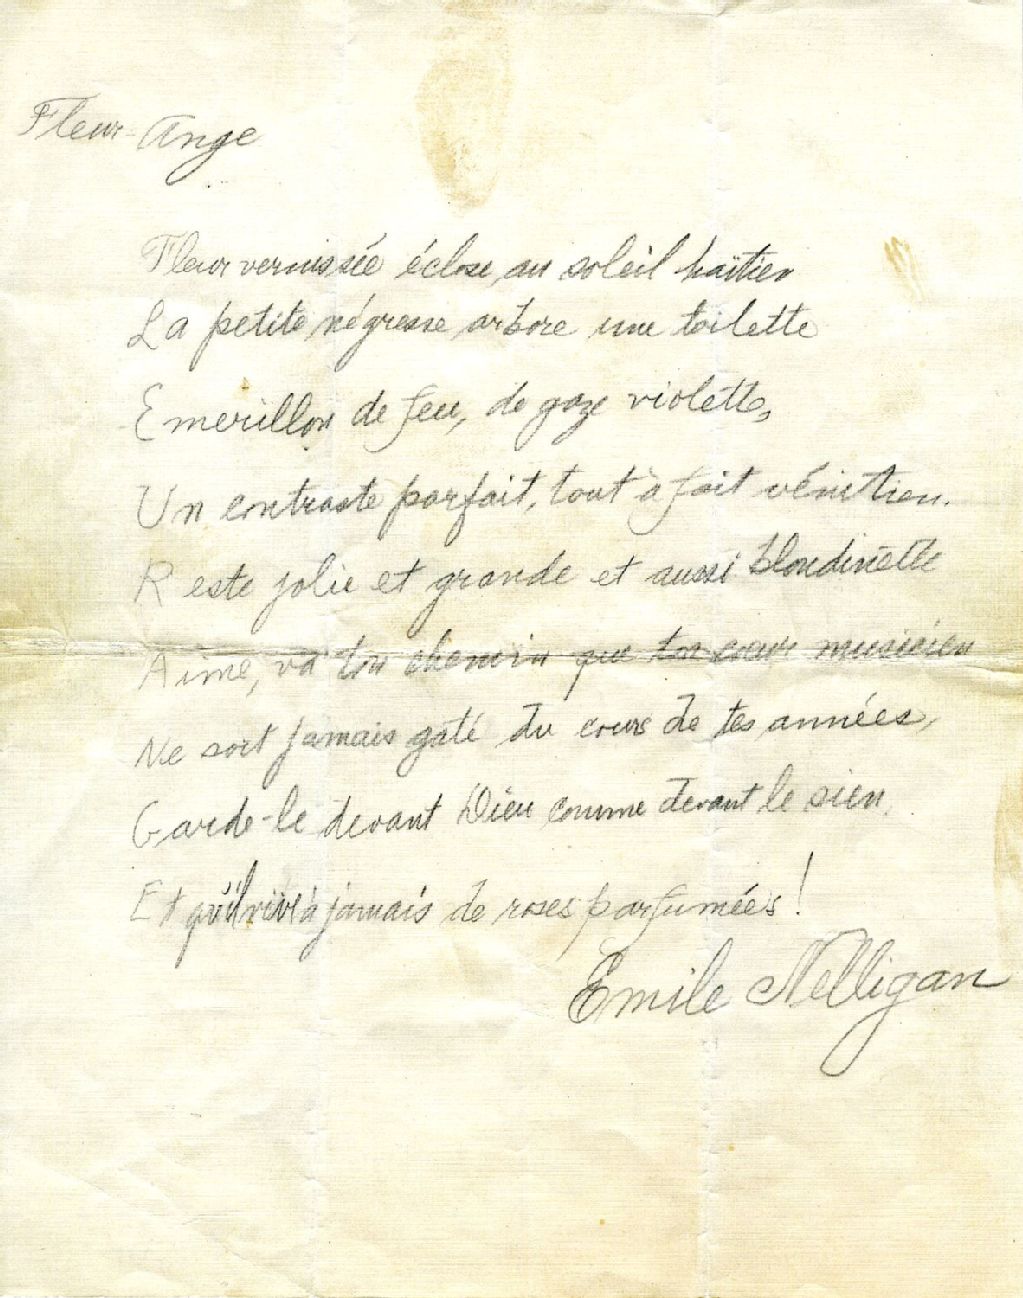 Fleur-Ange
Fleur vernissée éclose au soleil haïtien
La petite négresse arbore une toilette
Emerillon de feu, de gaze violette,
Un contraste parfait, tout à fait vénitien.
Reste jolie et grande et aussi blondinette
Aime, va ton chemin que ton coeur musicien
Ne soit jamais gaté du cours de tes années,
Garde-le devant Dieu comme devant le sien.
Et qu'il vive à jamais de roses parfumées!
Emile Nelligan